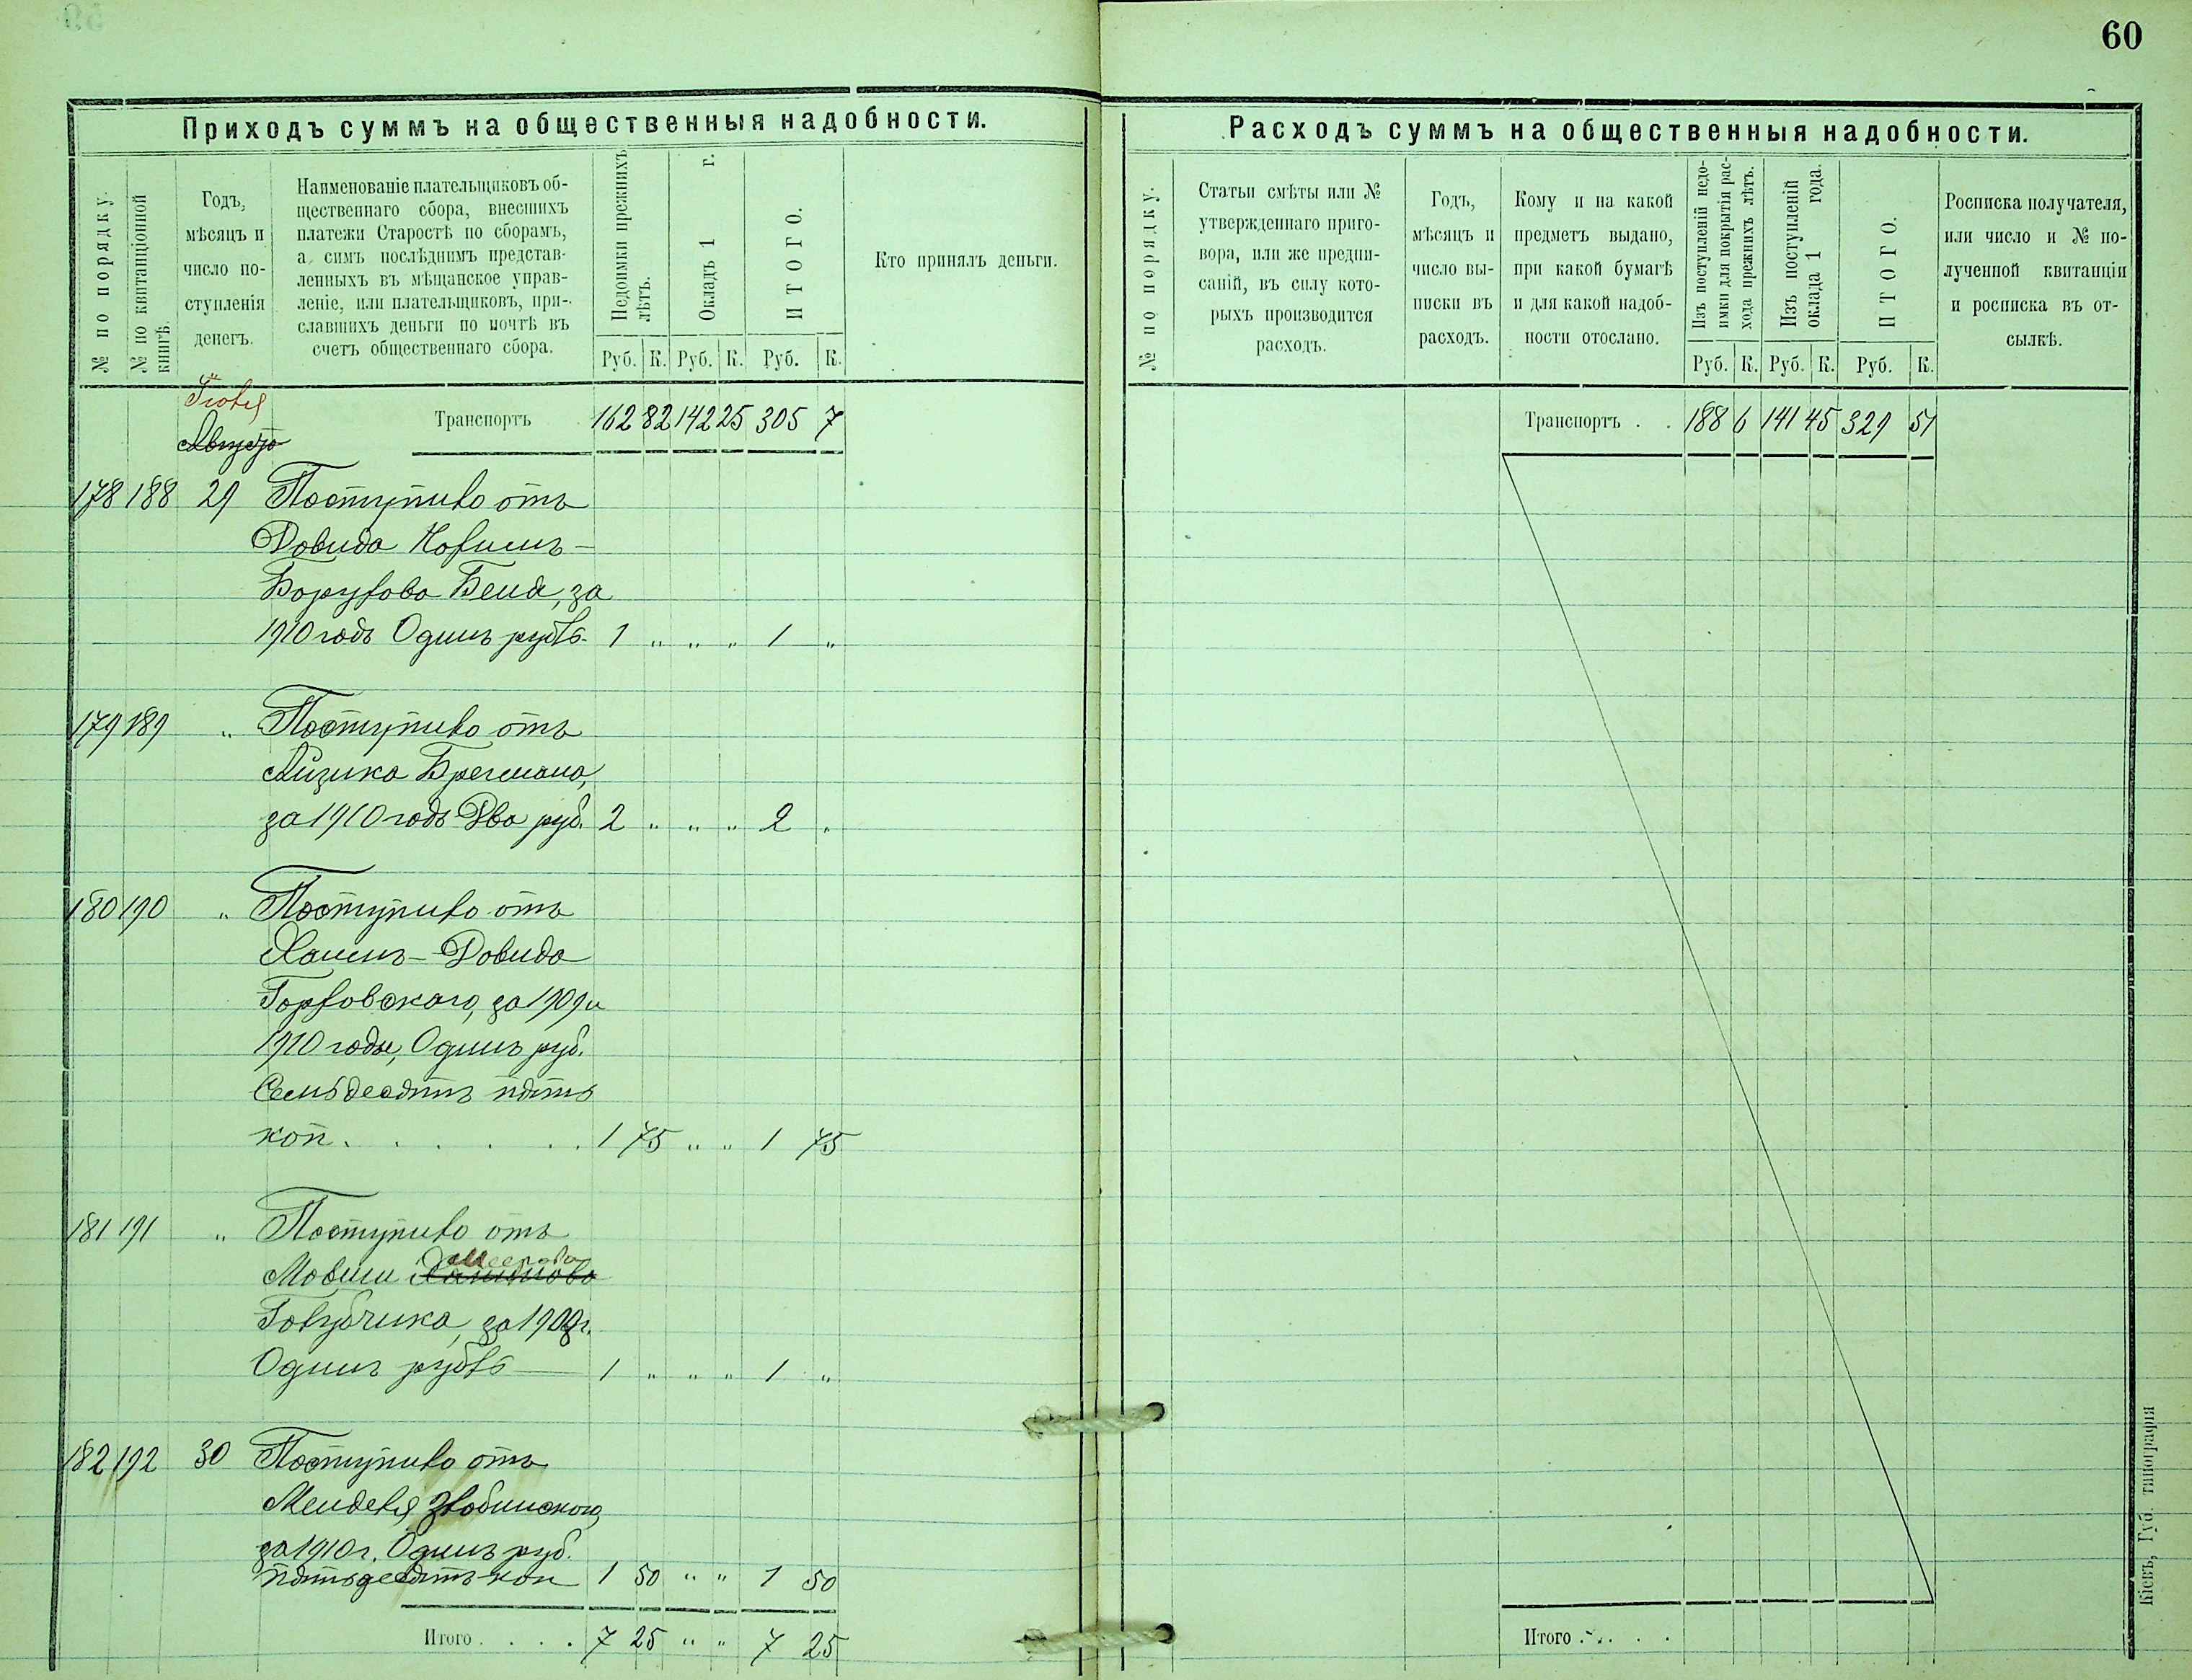 60
Приходъ суммъ на общественныя надобности.
№ по порядку.
№ по квитанціонной книгѣ.
Годъ,
мѣсяцъ и
число по-
ступленія
денегъ.
Наименованіе плательщиковъ об-
щественнаго сбора, внесшихъ
платежи Старостѣ по сборамъ,
а симъ послѣднимъ представ-
ленныхъ въ мѣщанское управ-
леніе, или плательщиковъ, при-
славшихъ деньги по почтѣ въ
счетъ общественнаго сбора.
Недоимки прежнихъ лѣтъ.
Окладъ 1 г.
ИТОГО.
Руб. К. Руб. К. Руб. К.
Кто принялъ деньги.
Іюля
Августа
Транспортъ 162 82 142 25 305 7
178 188 29 Поступило отъ
Довида Нохимъ-
Борухова Беня, за
1910 годъ Одинъ рубль 1 „ „ „ 1 „
179 189 „ Поступило отъ
Айзика Брегмана,
за 1910 годъ Два руб. 2 „ „ „ 2 „
180 190 „ Поступило отъ
Хаимъ-Довида
Горловскаго, за 1909 и
1910 годы, Одинъ руб.
Семьдесятъ пять
коп. . . . . . . 1 75 „ „ 1 75
181 191 „ Поступило отъ
Меерова
Мовши Хаимова
Голубчика, за 1909 г.
Одинъ рубль — 1 „ „ „ 1 „
182 192 30 Поступило отъ
Менделя Злобинскаго,
за 1910 г. Одинъ руб.
пятьдесятъ коп 1 50 „ „ 1 50
Итого . . . . 7 25 „ „ 7 25
Расходъ суммъ на общественныя надобности.
№ по порядку.
Статьи смѣты или №
утвержденнаго приго-
вора, или же предпи-
саній, въ силу кото-
рыхъ производится
расходъ.
Годъ,
мѣсяцъ и
число вы-
писки въ
расходъ.
Кому и на какой
предметъ выдано,
при какой бумагѣ
и для какой надоб-
ности отослано.
Изъ поступленій недо-
имки для покрытія рас-
хода прежнихъ лѣтъ.
Изъ поступленій
оклада 1 года.
ИТОГО.
Руб. К. Руб. К. Руб. К.
Росписка получателя,
или число и № по-
лученной квитанціи
и росписка въ от-
сылкѣ.
Транспортъ . . 188 6 141 45 329 51
Итого . . . .
Кіевъ, Губ. типографія